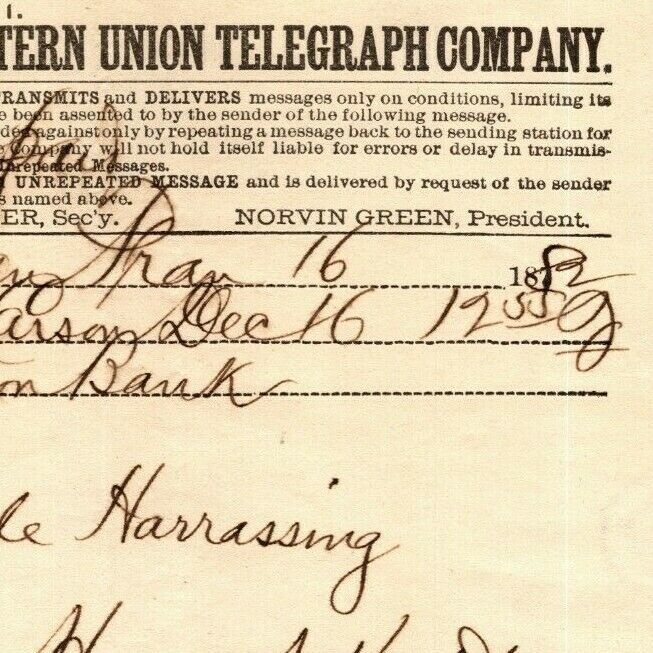 1.
TERN UNION TELEGRAPH COMPANY.
TRANSMITS and DELIVERS messages only on conditions, limiting its
e been assented to by the sender of the following message.
ded against only by repeating a message back to the sending station for
e Company will not hold itself liable for errors or delay in transmis-
Unrepeated Messages.
UNREPEATED MESSAGE and is delivered by request of the sender
s named above.
ER, Sec'y. NORVIN GREEN, President.
Fran 16 1882
arson Dec 16 12 55
on Bank
le Harrassing